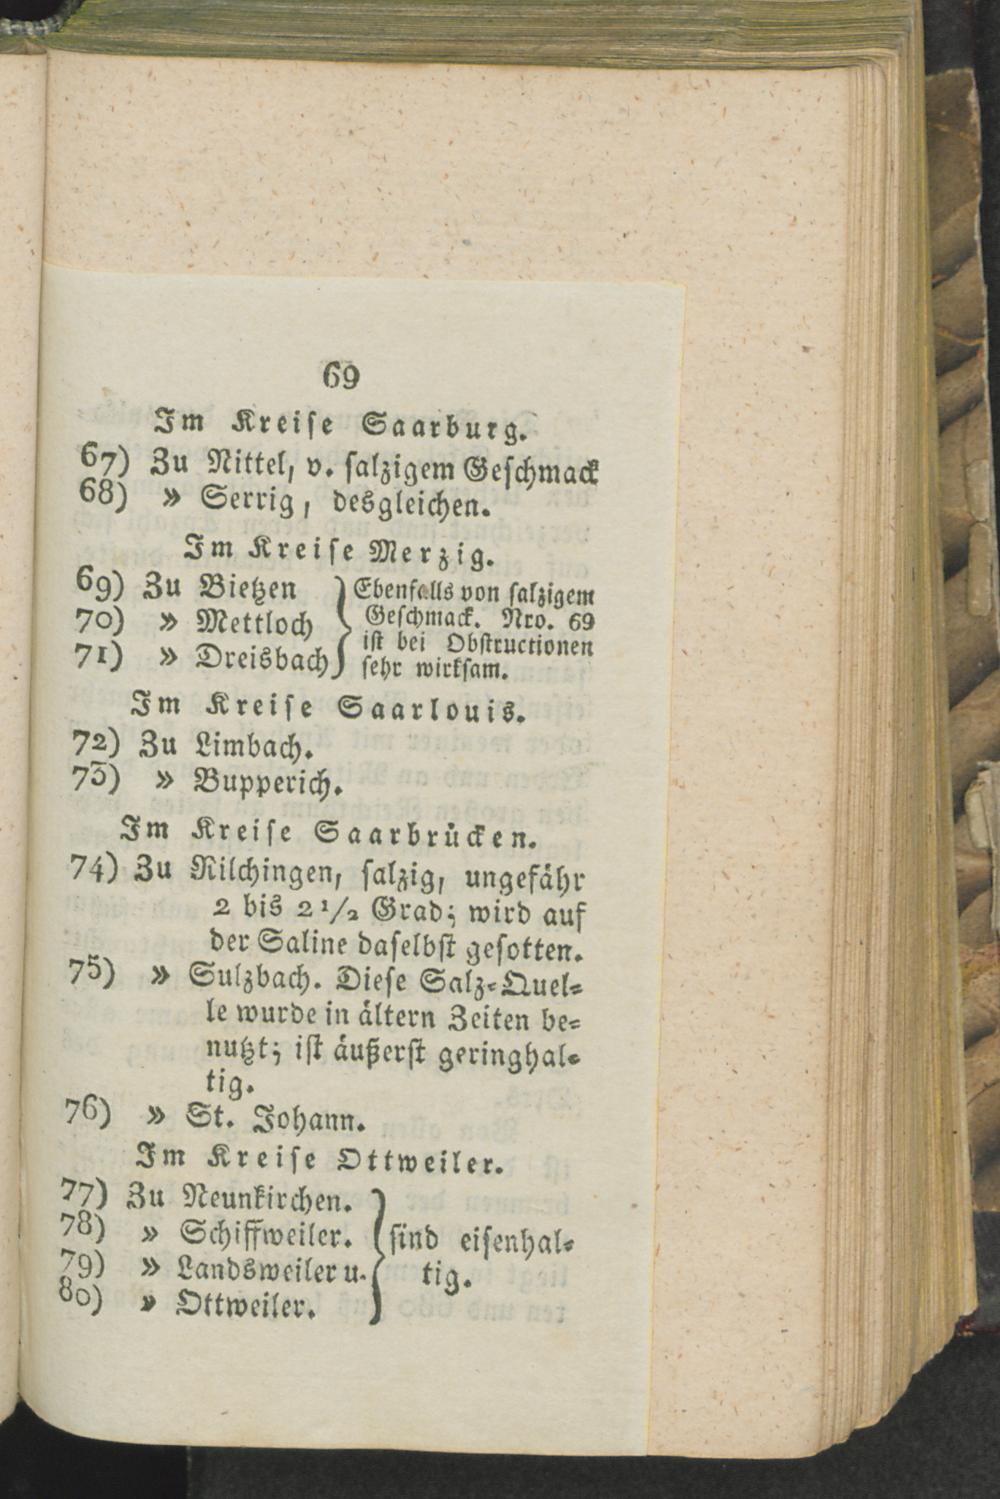 69
Im Kreise Saarburg.
67) Zu Nittel, v. salzigem Geschmack
68) » Serrig, desgleichen.
Im Kreise Merzig.
69) Zu Bietzen
70) » Mettloch
71) » Dreisbach
Ebenfalls von salzigem
Geschmack. Nro. 69
ist bei Obstructionen
sehr wirksam.
Im Kreise Saarlouis.
72) Zu Limbach.
73) » Bupperich.
Im Kreise Saarbrücken.
74) Zu Rilchingen, salzig, ungefähr
2 bis 2 1/2 Grad; wird auf
der Saline daselbst gesotten.
75) » Sulzbach. Diese Salz-Quel-
le wurde in ältern Zeiten be-
nutzt; ist äußerst geringhal-
tig.
76) » St. Johann.
Im Kreise Ottweiler.
77) Zu Neunkirchen.
78) » Schiffweiler.
79) » Landsweiler u.
80) » Ottweiler.
sind eisenhal-
tig.